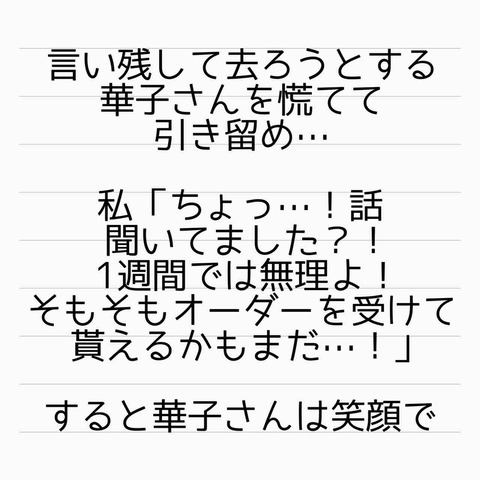 言い残して去ろうとする
華子さんを慌てて
引き留め…
私「ちょっ…！話
聞いてました？！
1週間では無理よ！
そもそもオーダーを受けて
貰えるかもまだ…！」
すると華子さんは笑顔で